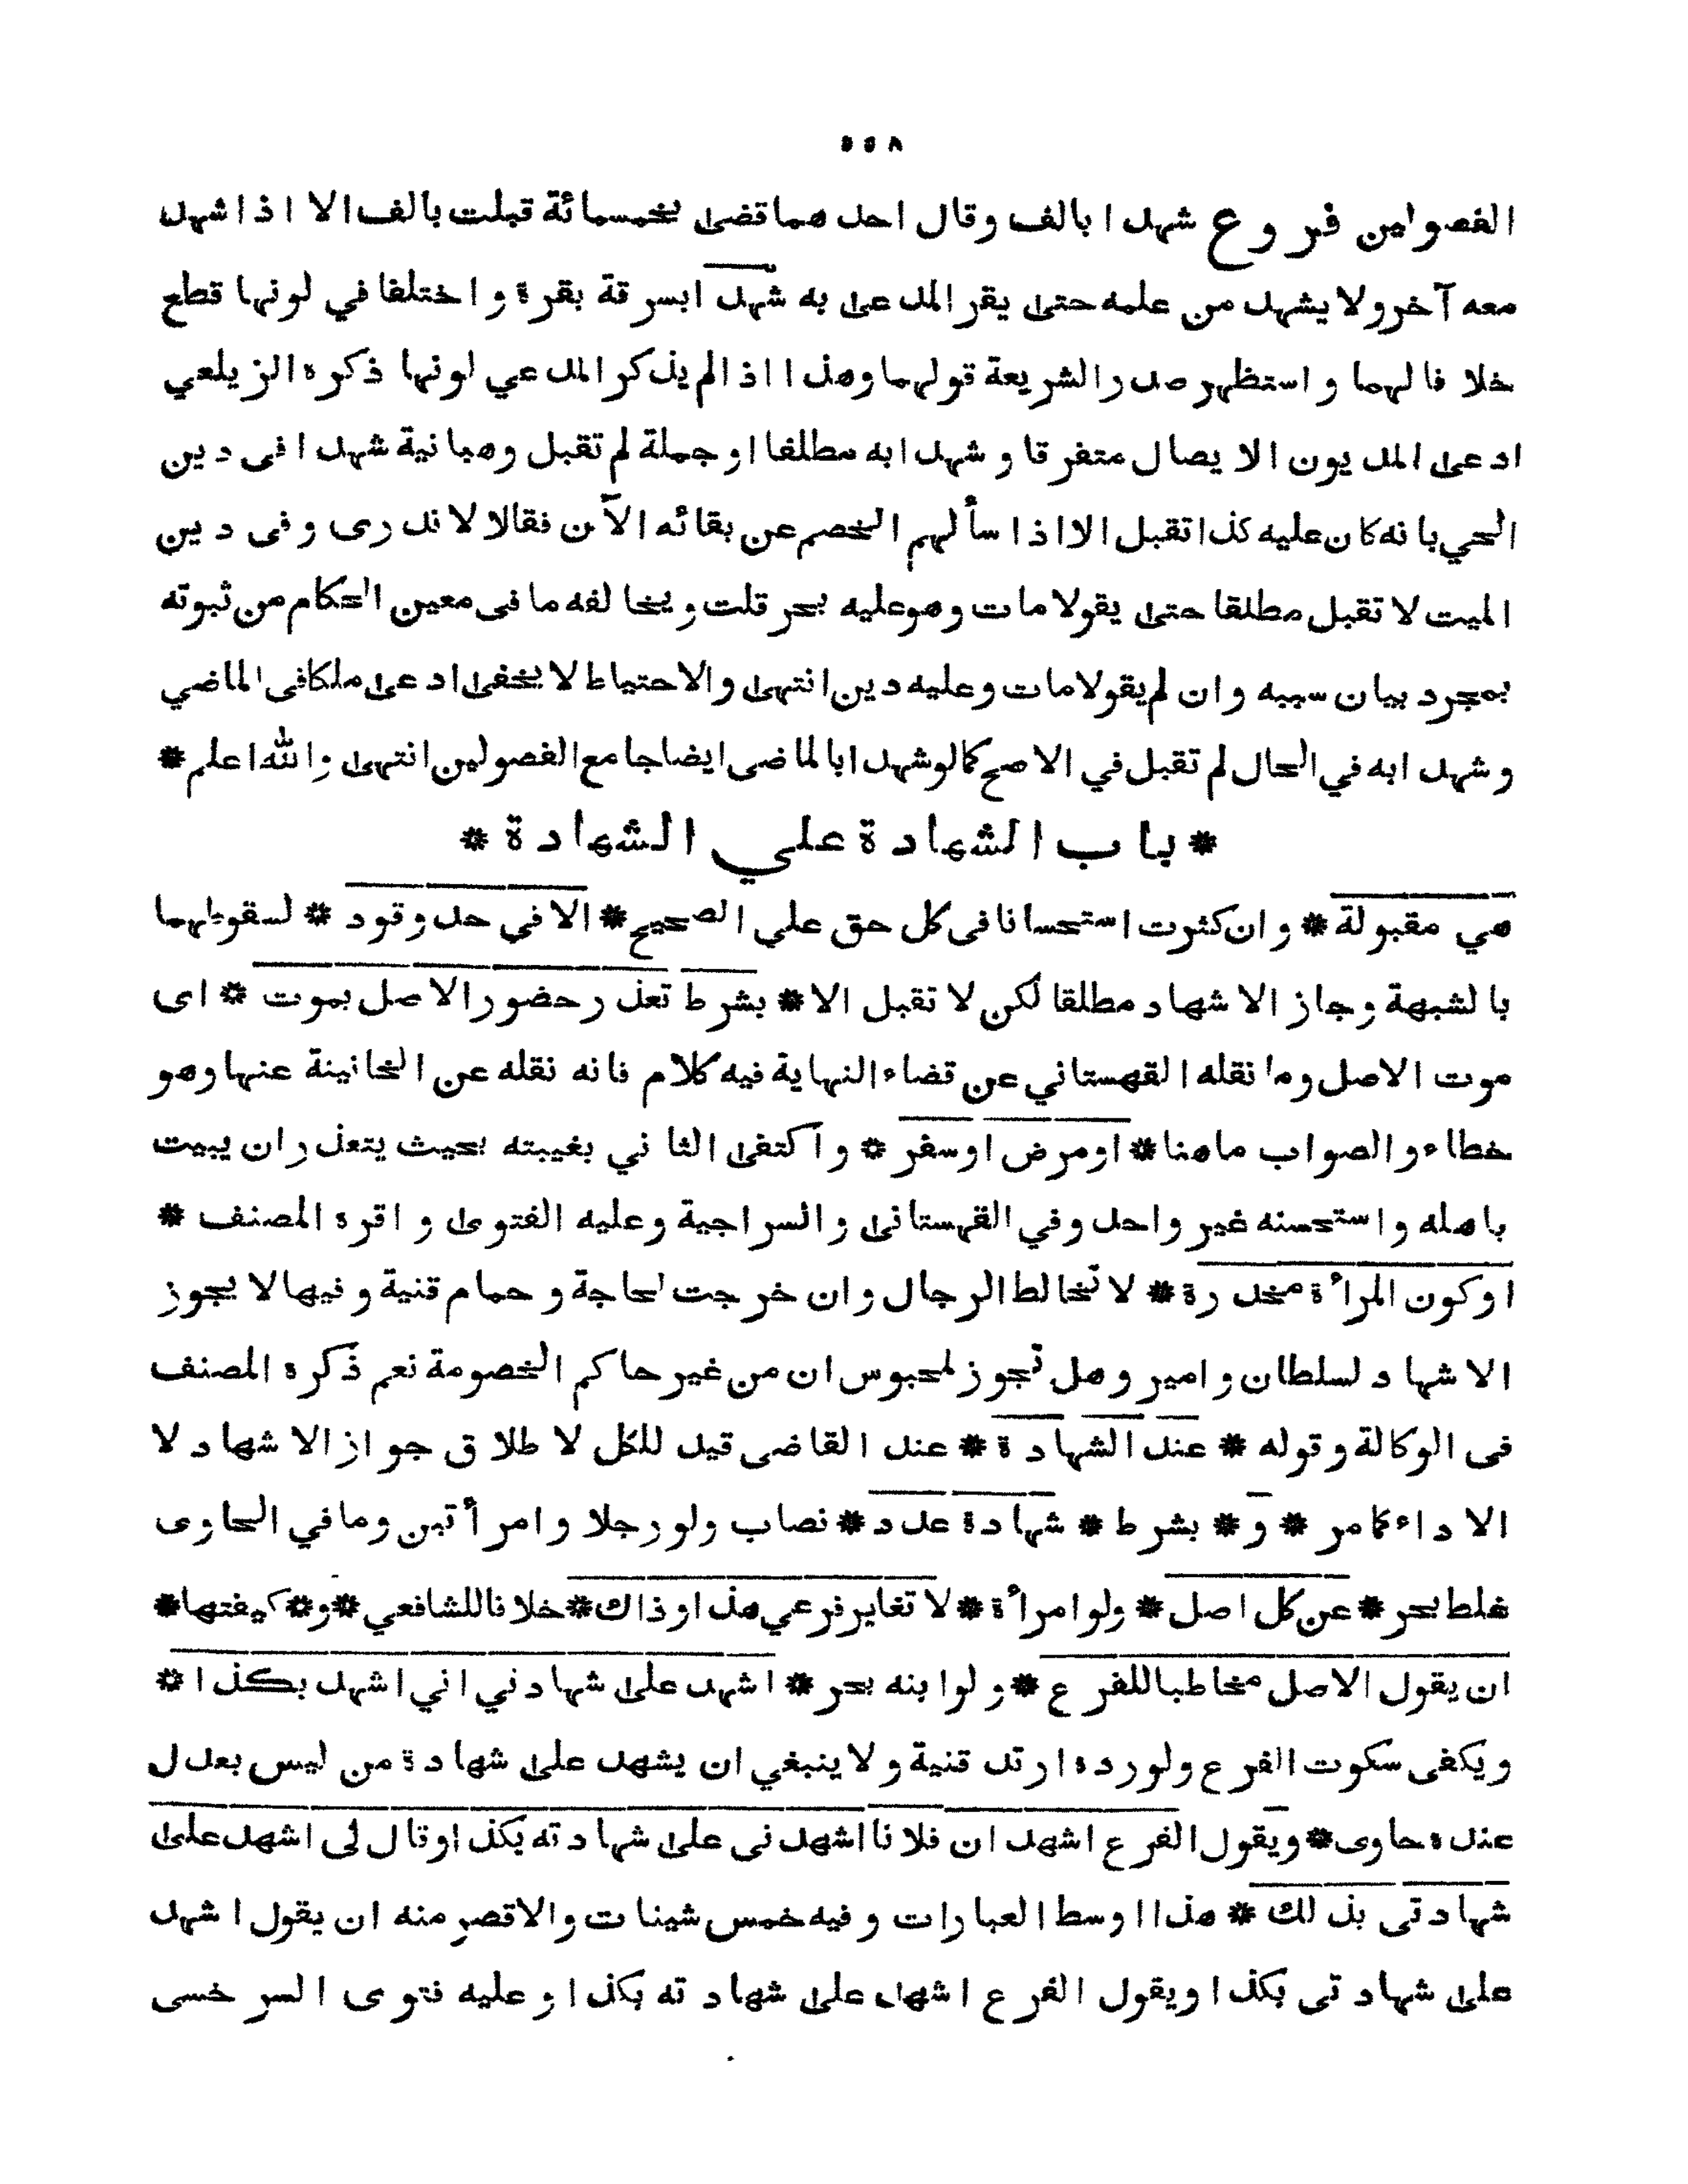 ٥٥٨
الفصولين فروع شهدا بالف وقال احدهما قضى بخمسمائة قبلت بالف الا اذا شهد
معه آخر ولا يشهد من علمه حتى يقر المدعى به شهدا بسرقة بقرة واختلفا في لونها قطع
خلافا لهما واستظهر صدر الشريعة قولهما وهذا اذا لم يذكر المدعي لونها ذكره الزيلعي
ادعى المديون الايصال متفرقا وشهدا به مطلقا او جملة لم تقبل وهبانية شهدا فى دين
الحي بانه كان عليه كذا تقبل الا اذا سألهم الخصم عن بقائه الآن فقالا لا ندرى وفى دين
الميت لا تقبل مطلقا حتى يقولا مات وهو عليه بحر قلت ويخالفه ما فى معين الحكام من ثبوته
بمجرد بيان سببه وان لم يقولا مات وعليه دين انتهى والاحتياط لا يخفى ادعى ملكا فى الماضي
وشهدا به في الحال لم تقبل في الاصح كما لو شهدا بالماضى ايضا جامع الفصولين انتهى والله اعلم *
* باب الشهادة علي الشهادة *
هي مقبولة * وان كثرت استحسانا فى كل حق علي الصحيح * الا في حد وقود * لسقوطهما
بالشبهة وجاز الاشهاد مطلقا لكن لا تقبل الا * بشرط تعذر حضور الاصل بموت * اى
موت الاصل وما نقله القهستاني عن قضاء النهاية فيه كلام فانه نقله عن الخانينة عنها وهو
خطاء والصواب ما هنا * او مرض او سفر * واكتفى الثاني بغيبته بحيث يتعذر ان يبيت
باهله واستحسنه غير واحد وفي القهستانى والسراجية وعليه الفتوى واقره المصنف *
او كون المرأة مخدرة * لا تخالط الرجال وان خرجت لحاجة وحمام قنية وفيها لا يجوز
الاشهاد لسلطان وامير وهل تجوز لمحبوس ان من غير حاكم الخصومة نعم ذكره المصنف
فى الوكالة وقوله * عند الشهادة * عند القاضى قيد للكل لا طلاق جواز الاشهاد لا
الاداء كما مر * و * بشرط * شهادة عدد * نصاب ولو رجلا وامرأتين وما في الحاوى
غلط بحر * عن كل اصل * ولو امرأة * لا تغاير فرعي هذا وذاك * خلافا للشافعي * و * كيفتها *
ان يقول الاصل مخاطبا للفرع * ولو ابنه بحر * اشهد على شهادتي اني اشهد بكذا *
ويكفى سكوت الفرع ولو رده ارتد قنية ولا ينبغي ان يشهد على شهادة من ليس بعدل
عنده حاوى * ويقول الفرع اشهد ان فلانا اشهدنى على شهادته بكذا وقال لى اشهد على
شهادتى بذلك * هذا اوسط العبارات وفيه خمس شينات والاقصر منه ان يقول اشهد
على شهادتى بكذا ويقول الفرع اشهد على شهادته بكذا وعليه فتوى السرخسى